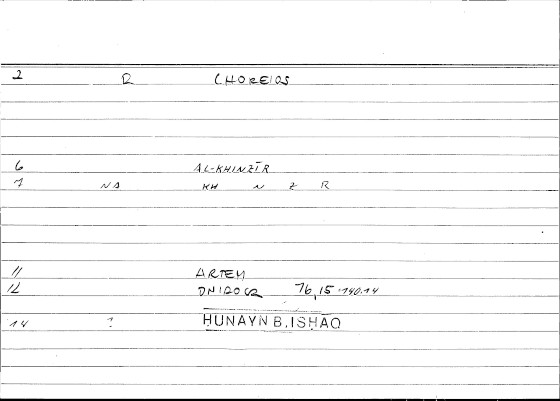 2 R CHOREIOS
6 AL-KHINZĪR
7 NA KH N Z R
11 ARTEM
12 76,15 140.14
14 ? ḤUNAYN B. ISḤAQ